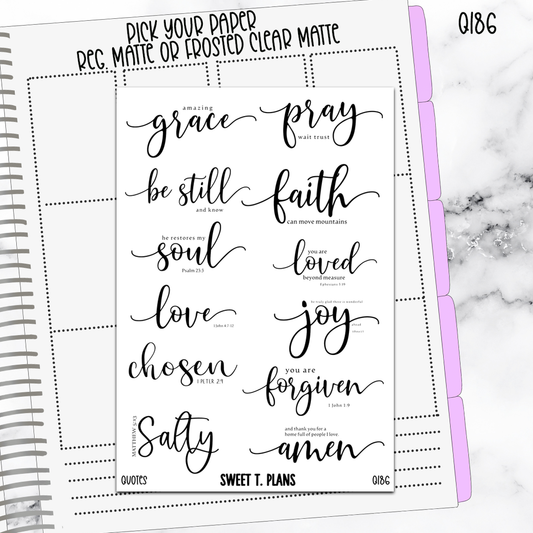 PICK YOUR PAPER
REG. MATTE OR FROSTED CLEAR MATTE
Q186
amazing
grace
pray
wait trust
be still
and know
faith
can move mountains
he restores my
soul
Psalm 23:3
you are
loved
beyond measure
Ephesians 3:19
love
1 John 4:7-12
be truly glad there is wonderful
joy
ahead
chosen
1 PETER 2:9
you are
forgiven
1 John 1:9
MATTHEW 5:13
Salty
and thank you for a
home full of people I love.
amen
QUOTES
SWEET T. PLANS
Q186